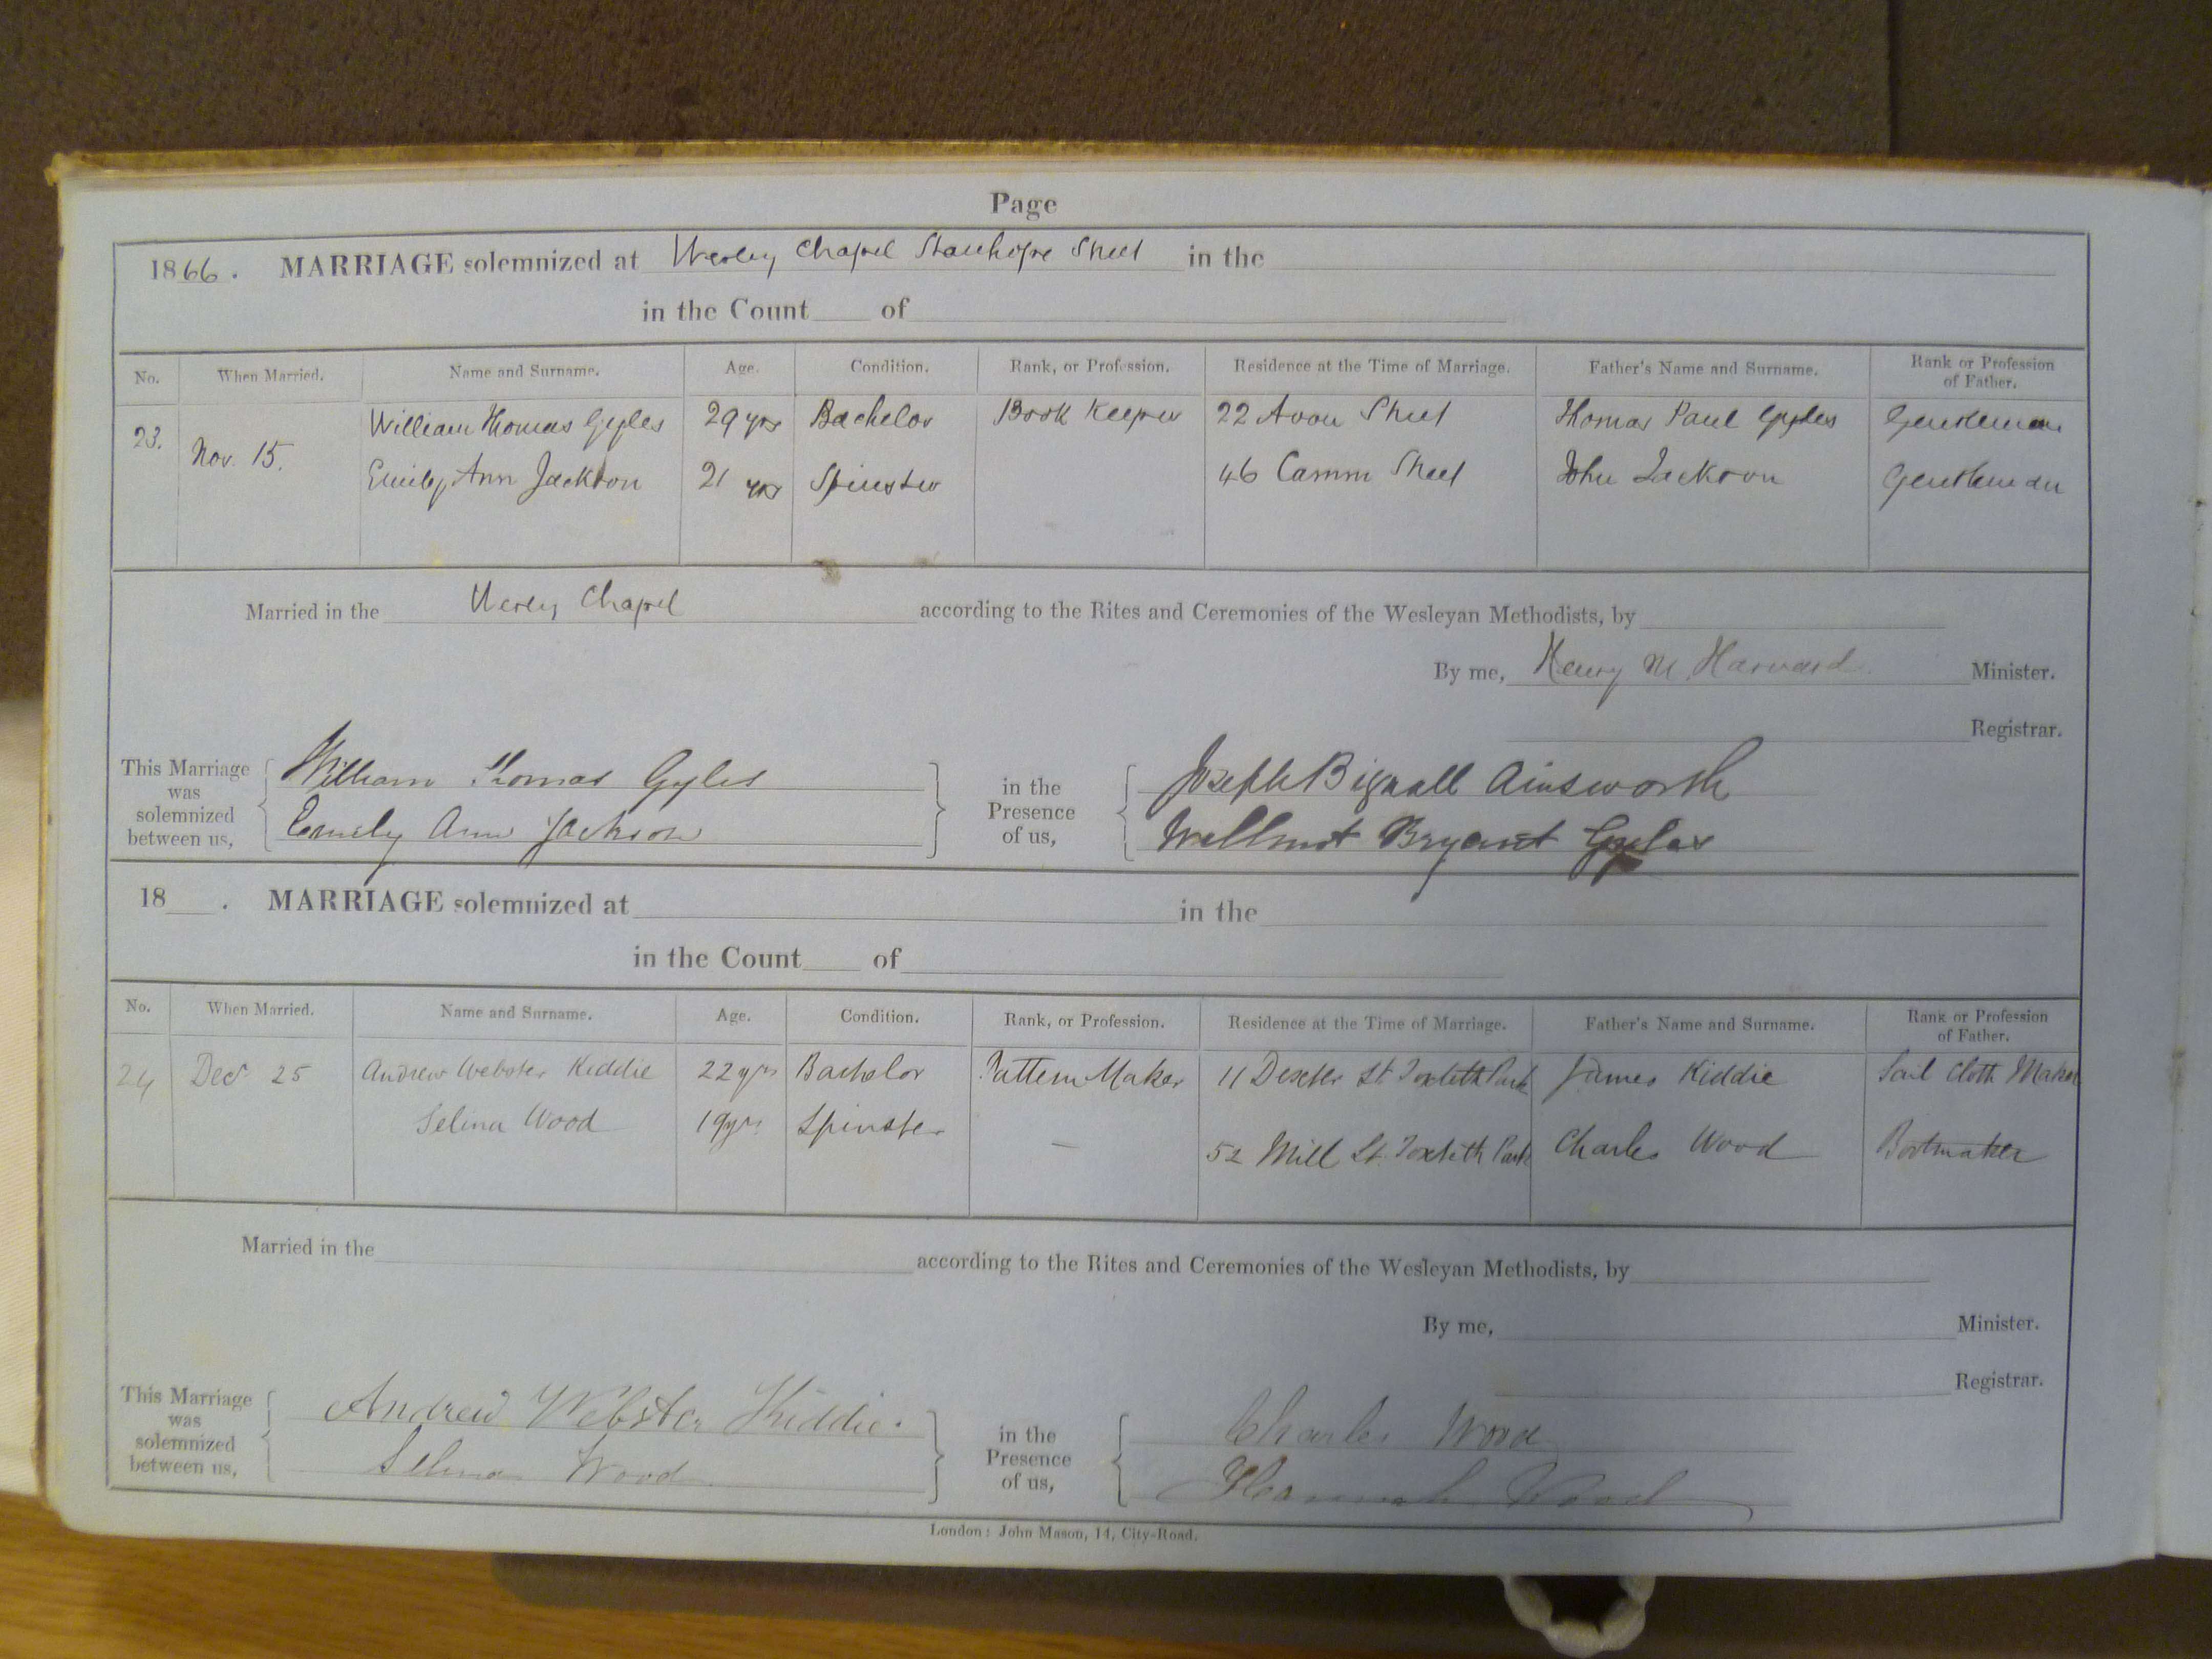 Page
1866. MARRIAGE solemnized at Wesley Chapel Stanhope Street in the
in the Count of
No. When Married. Name and Surname. Age. Condition. Rank, or Profession. Residence at the Time of Marriage. Father's Name and Surname. Rank or Profession of Father.
23. Nov. 15. William Thomas Gyles 29 yrs Bachelor Book Keeper 22 Avon Street Thomas Paul Gyles Gentleman
Emily Ann Jackson 21 yrs Spinster 46 Camm Street John Jackson Gentleman
Married in the Wesley Chapel according to the Rites and Ceremonies of the Wesleyan Methodists, by
By me, Henry M. Harvard Minister.
Registrar.
This Marriage was solemnized between us, William Thomas Gyles in the Presence of us, Joseph Bignall Ainsworth
Emily Ann Jackson Bryant Gyles
18 . MARRIAGE solemnized at in the
in the Count of
No. When Married. Name and Surname. Age. Condition. Rank, or Profession. Residence at the Time of Marriage. Father's Name and Surname. Rank or Profession of Father.
24 Decr 25 Andrew Webster Kiddie 22 yrs Bachelor Pattern Maker 11 Dexter St Toxteth Park James Kiddie Sail Cloth Maker
Selina Wood 19 yrs Spinster — 52 Mill St. Toxteth Park Charles Wood Bootmaker
Married in the according to the Rites and Ceremonies of the Wesleyan Methodists, by
By me, Minister.
Registrar.
This Marriage was solemnized between us, Andrew Webster Kiddie. in the Presence of us, Charles Wood
Selina Wood Hannah Wood
London: John Mason, 14, City-Road.